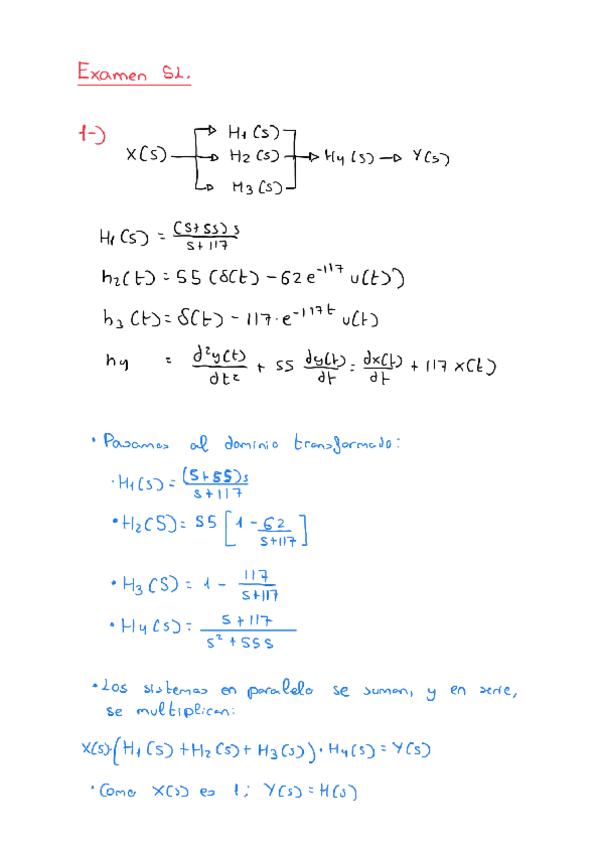 Examen SL.
1-)
X(s) H1(s) H2(s) H3(s) H4(s) Y(s)
H1(s) = (s+55)s / s+117
h2(t) = 55 (δ(t) - 62e^-117 u(t))
h3(t) = δ(t) - 117·e^-117t u(t)
hy = d²y(t)/dt² + 55 dy(t)/dt = dx(t)/dt + 117 x(t)
• Pasamos al dominio transformado:
· H1(s) = (s+55)s / s+117
• H2(s) = 55 [1 - 62 / s+117]
• H3(s) = 1 - 117 / s+117
• H4(s) = s+117 / s²+55s
• Los sistemas en paralelo se suman, y en serie,
se multiplican:
X(s)·(H1(s) + H2(s) + H3(s))·H4(s) = Y(s)
• Como X(s) es 1; Y(s) = H(s)